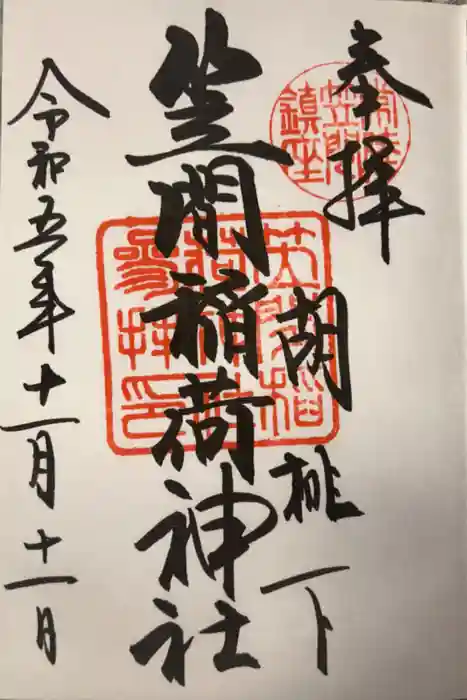 奉拝
常陸
笠間
鎮座
胡桃下
笠間稲荷神社
笠間稲
參拝印
令和五年十一月十一日